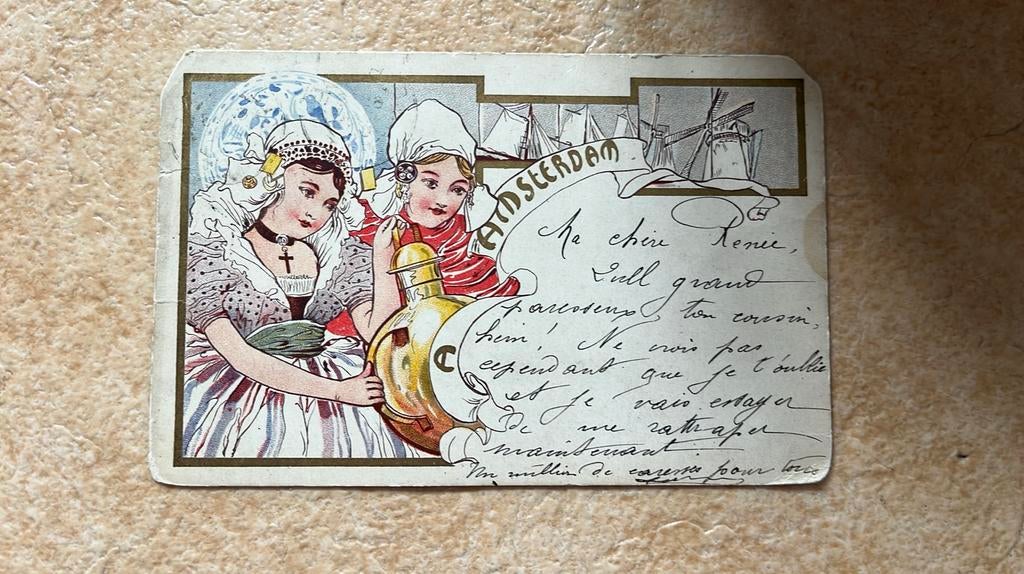 AMSTERDAM
A
Ma chère Renée,
grand
paresseux ton cousin,
hein! Ne crois pas
cependant que je t'oublie
et je vais essayer
de me rattraper
maintenant.
Un million de caresses pour tous